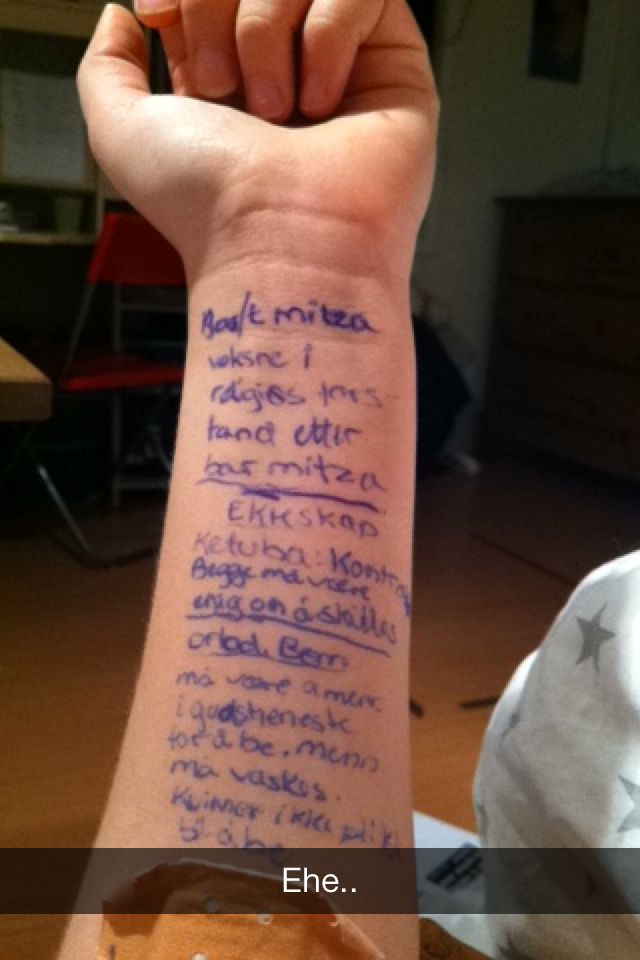 Bat mitza
voksne i
religiøs
tand etter
bar mitza
EKKSKAP
Ketuba: Kontra
Begge må være
enig om å skilles
Ber
må være
i gudstheneste
for å be. menn
må vaskes.
Kvinner ikke plikt
til å be
Ehe..